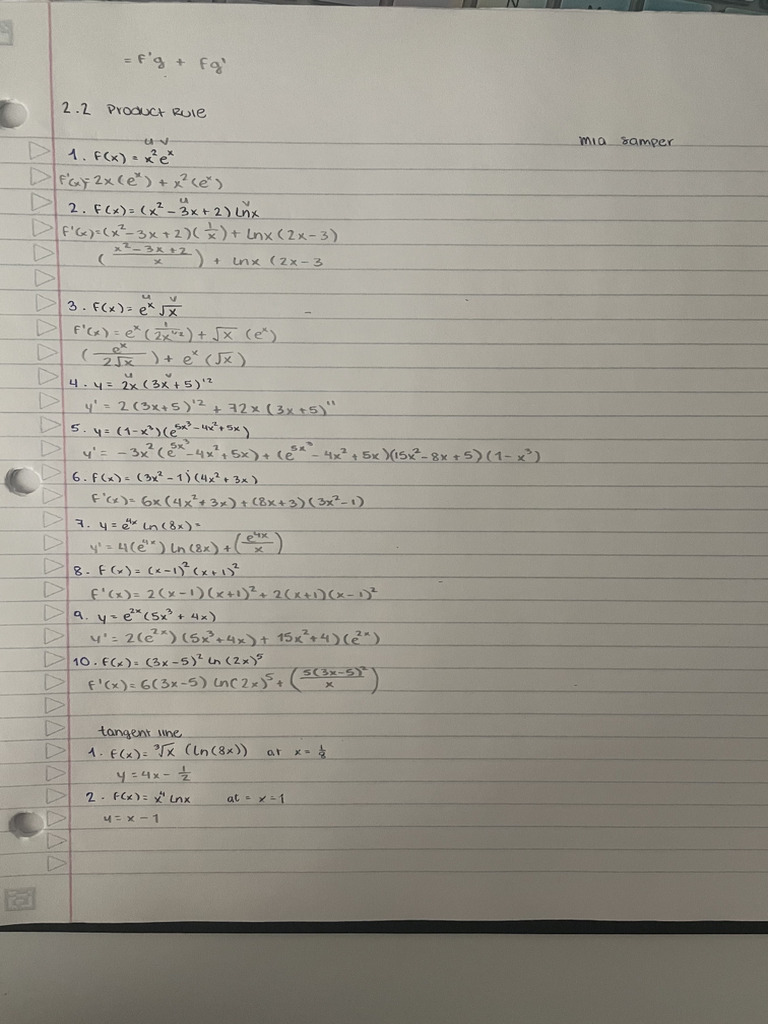 = F'g + Fg'
2.2 Product Rule
mia samper
u v
1. F(x) = x²eˣ
F'(x) = 2x(eˣ) + x²(eˣ)
u v
2. F(x) = (x² - 3x + 2) lnx
F'(x) = (x² - 3x + 2)(1/x) + lnx (2x - 3)
((x² - 3x + 2)/x) + lnx (2x - 3
u v
3. F(x) = eˣ √x
F'(x) = eˣ (1/(2x^(1/2))) + √x (eˣ)
(eˣ/(2√x)) + eˣ (√x)
u v
4. y = 2x (3x + 5)¹²
y' = 2(3x + 5)¹² + 72x (3x + 5)¹¹
5. y = (1 - x³)(e^(5x³ - 4x² + 5x))
y' = -3x² (e^(5x³) - 4x² + 5x) + (e^(5x³) - 4x² + 5x)(15x² - 8x + 5)(1 - x³)
6. F(x) = (3x² - 1)(4x² + 3x)
F'(x) = 6x(4x² + 3x) + (8x + 3)(3x² - 1)
7. y = e^(4x) ln(8x) =
y' = 4(e^(4x)) ln(8x) + (e^(4x)/x)
8. F(x) = (x - 1)² (x + 1)²
F'(x) = 2(x - 1)(x + 1)² + 2(x + 1)(x - 1)²
9. y = e^(2x) (5x³ + 4x)
y' = 2(e^(2x))(5x³ + 4x) + 15x² + 4)(e^(2x))
10. F(x) = (3x - 5)² ln(2x)⁵
F'(x) = 6(3x - 5) ln(2x)⁵ + (5(3x - 5)²/x)
tangent line
1. F(x) = ³√x (ln(8x)) at x = 1/8
y = 4x - 1/2
2. F(x) = x⁴ lnx at = x = 1
y = x - 1